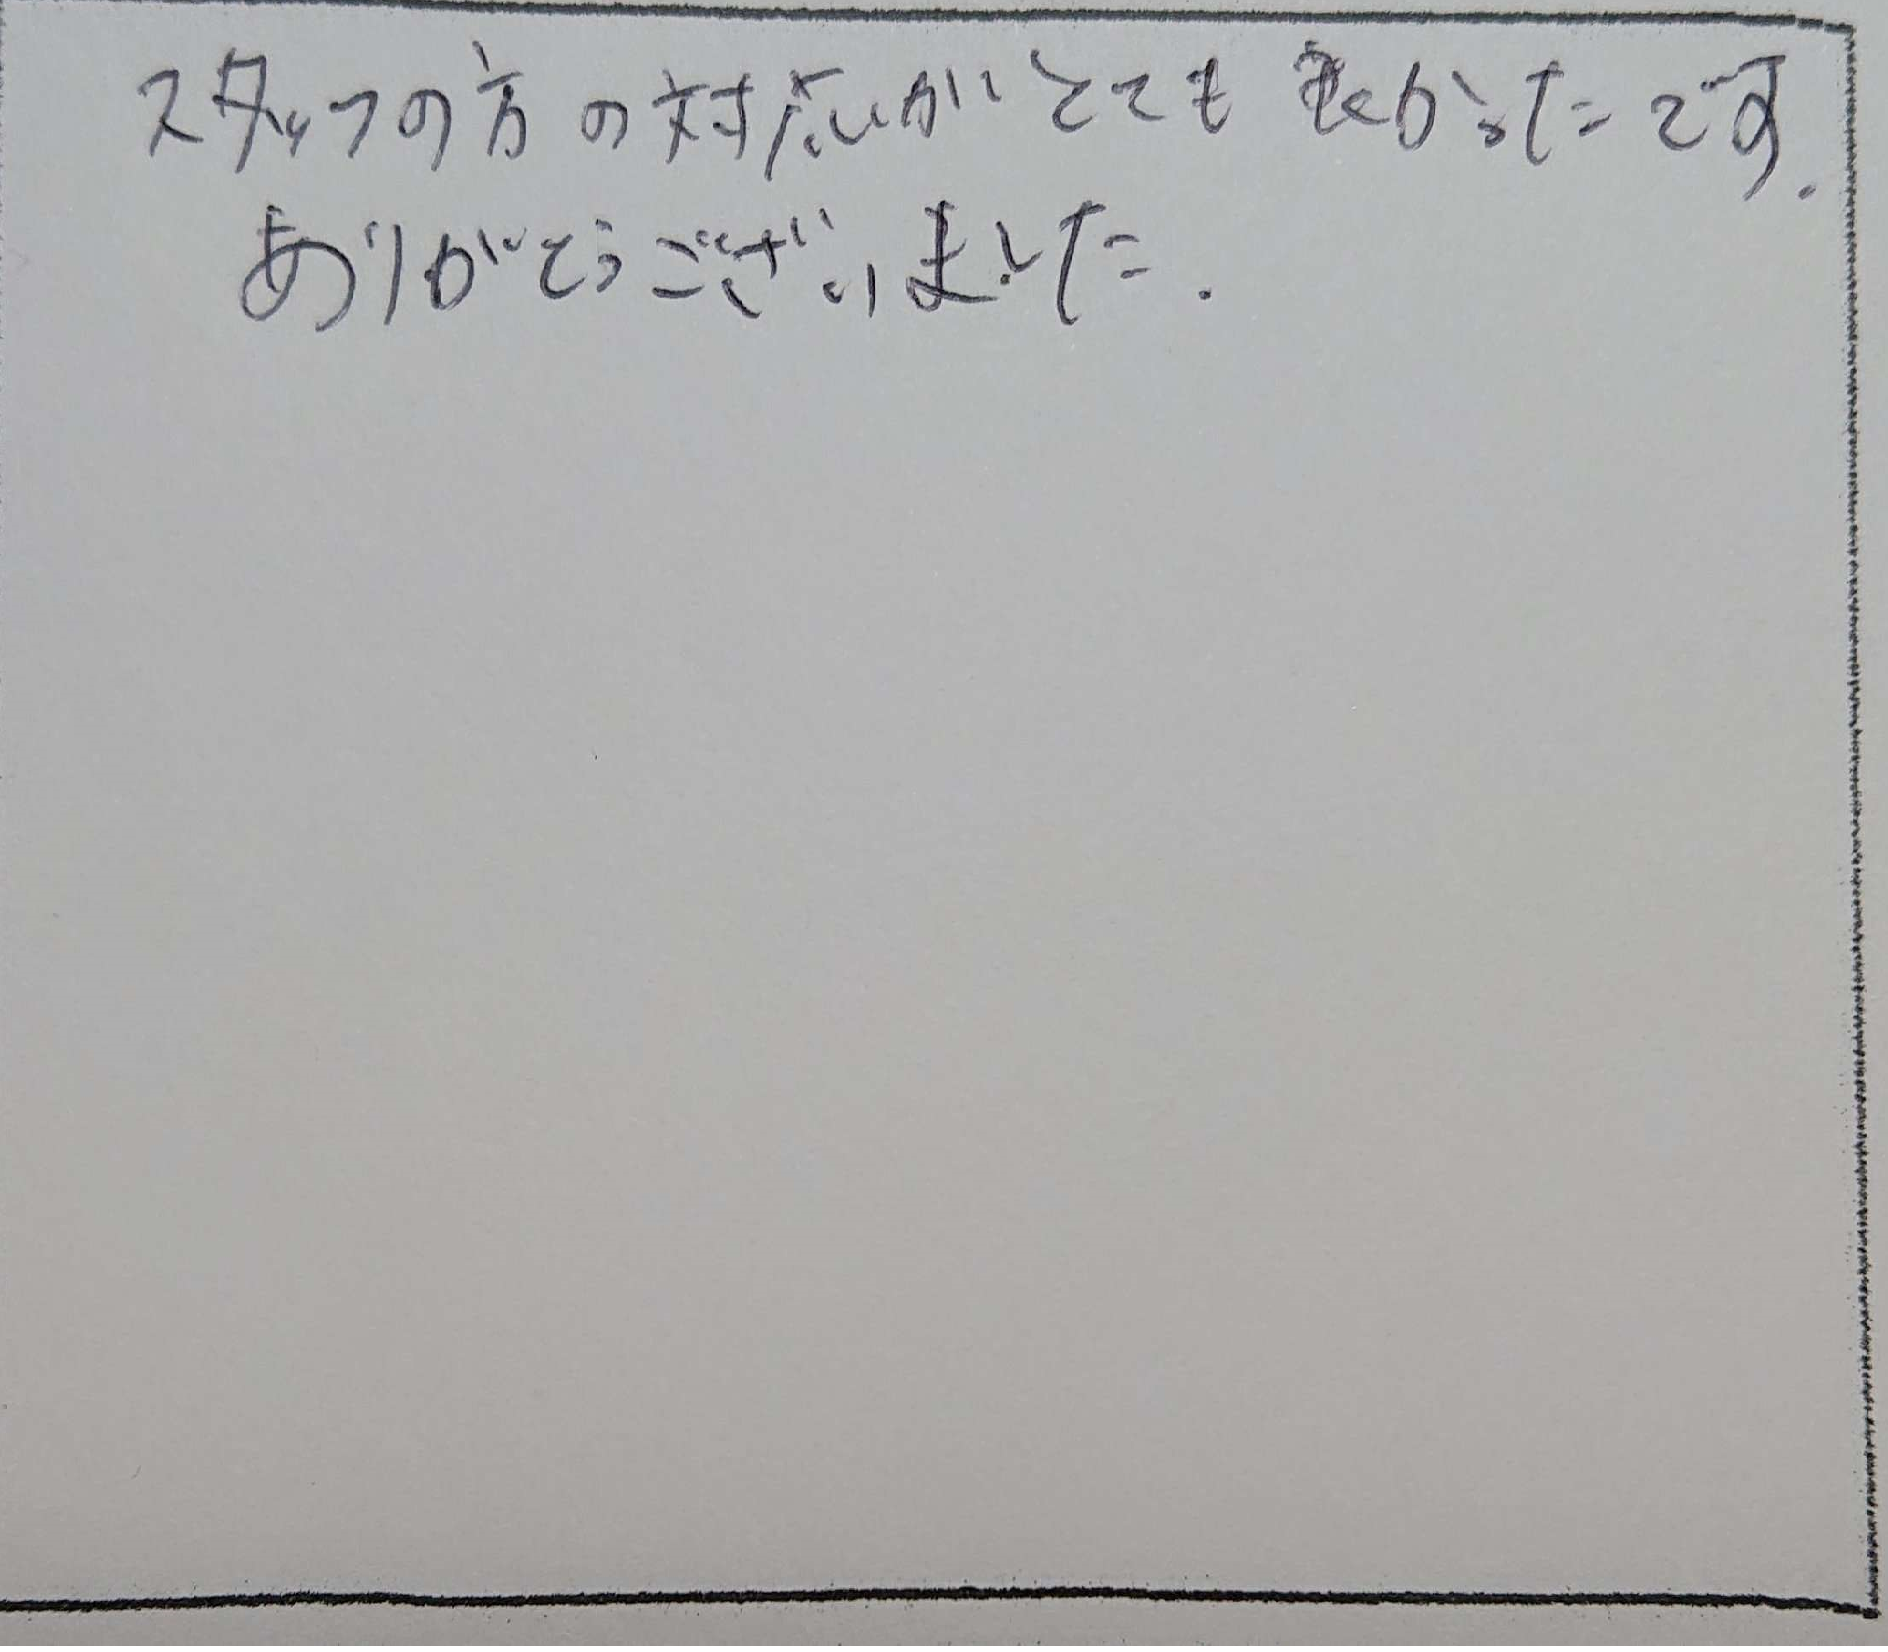 スタッフの方の対応がとても良かったです.
ありがとうございました.